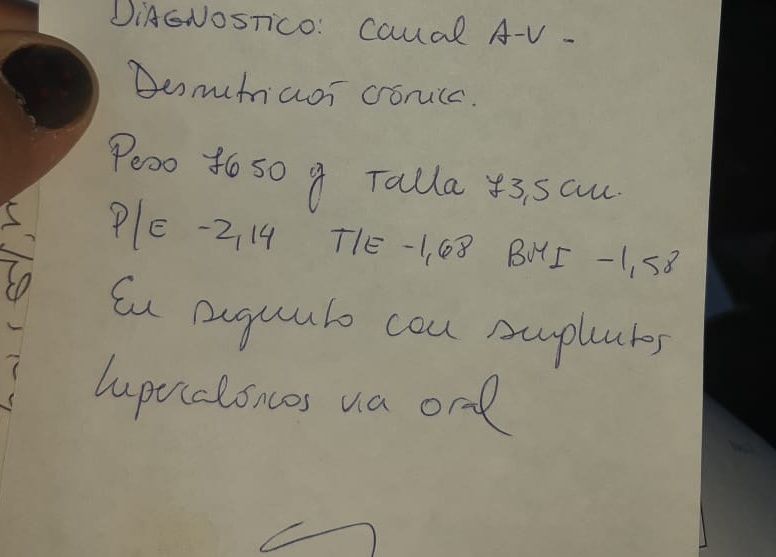 DIAGNOSTICO: Canal A-V -
Desnutrición crónica.
Peso 7650 g Talla 73,5 cm.
P/E -2,14 T/E -1,68 BMI -1,58
En seguimto con suplmtos
hipercalóricos via oral